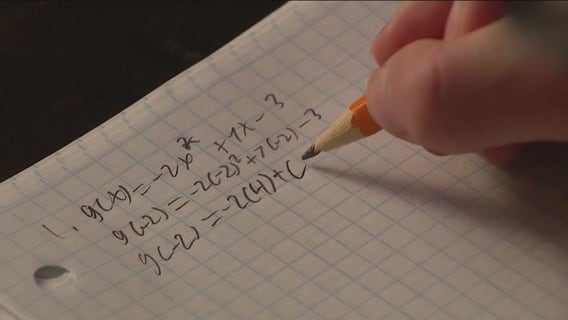 1. g(x) = -2x² + 7x - 3
g(-2) = -2(-2)² + 7(-2) - 3
g(-2) = -2(4) + (